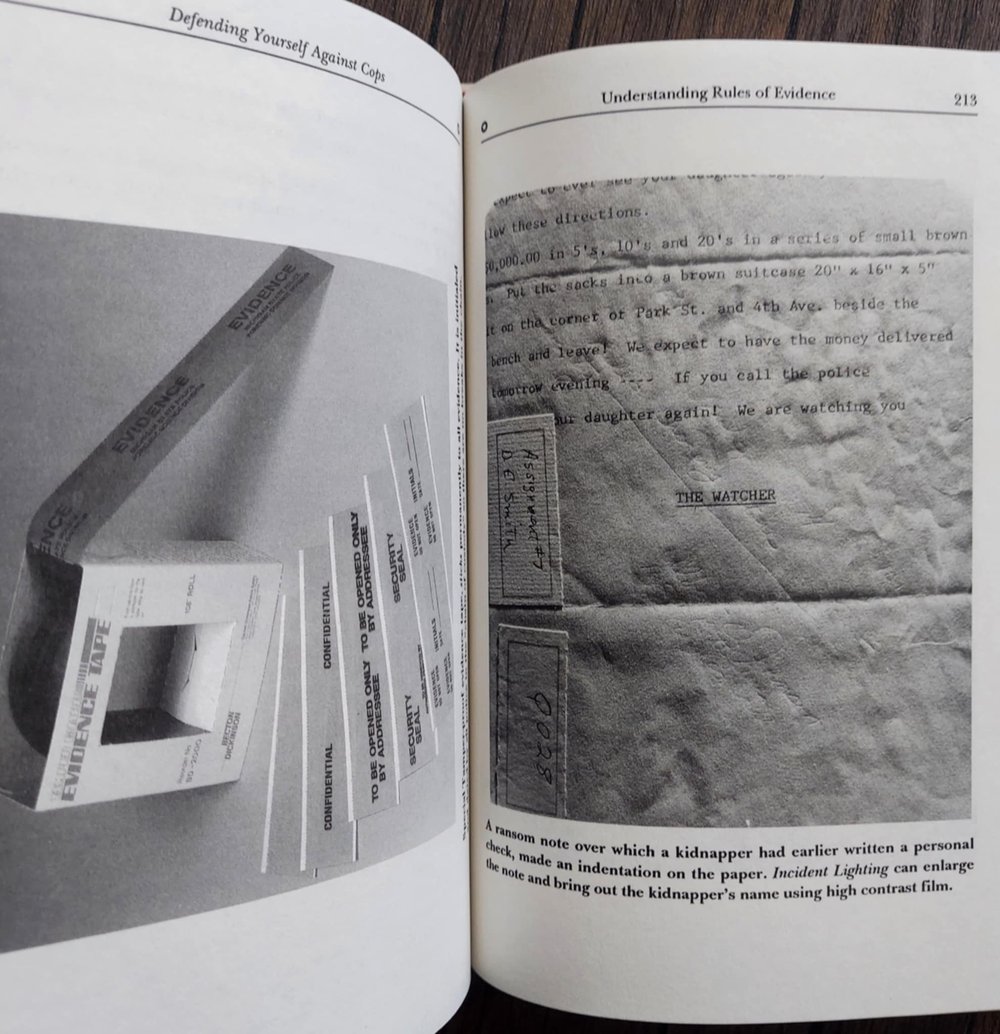 Defending Yourself Against Cops
EVIDENCE
EVIDENCE
EVIDENCE TAPE
BECTON
DICKINSON
CONFIDENTIAL
CONFIDENTIAL
TO BE OPENED ONLY
BY ADDRESSEE
TO BE OPENED ONLY
BY ADDRESSEE
SECURITY
SEAL
SECURITY
SEAL
EVIDENCE
INITIALS
EVIDENCE
INITIALS
Understanding Rules of Evidence
213
expect to ever see your
low these directions.
0,000.00 in 5's, 10's and 20's in a series of small brown
Put the sacks into a brown suitcase 20" x 16" x 5"
t on the corner of Park St. and 4th Ave. beside the
bench and leave! We expect to have the money delivered
tomorrow evening ---- If you call the police
ur daughter again! We are watching you
THE WATCHER
Smith
0028
A ransom note over which a kidnapper had earlier written a personal
check, made an indentation on the paper. Incident Lighting can enlarge
the note and bring out the kidnapper's name using high contrast film.